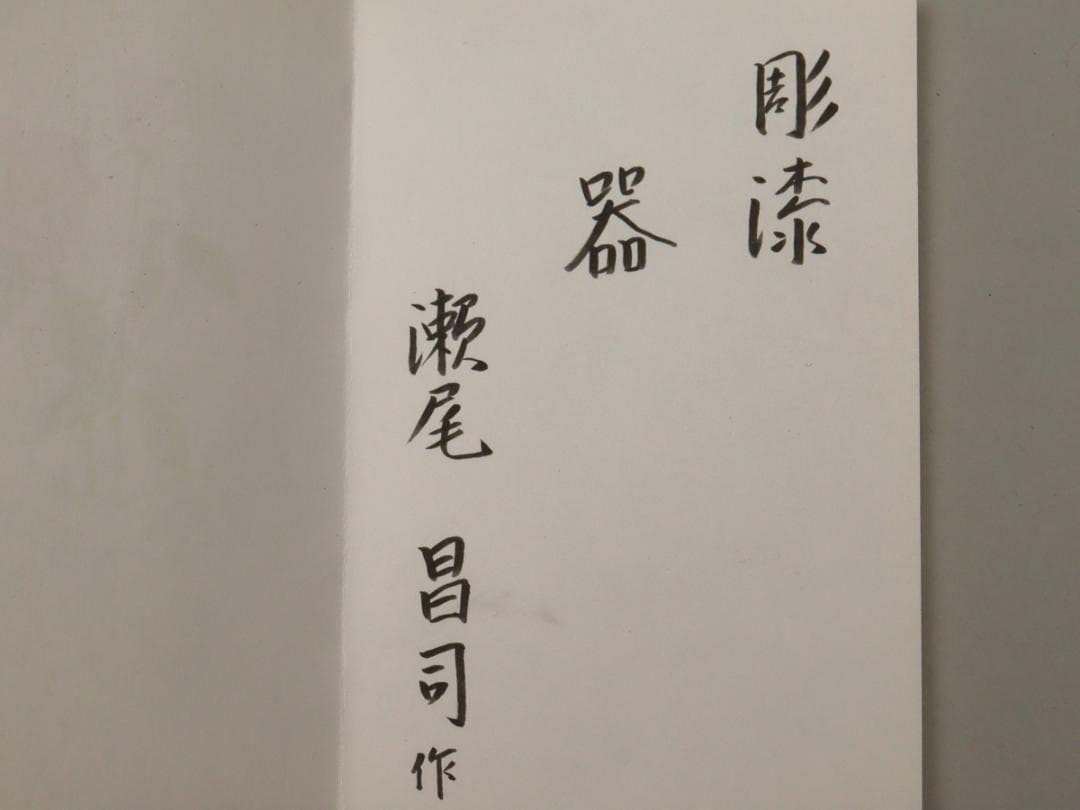 彫漆
器
瀬尾 昌司 作